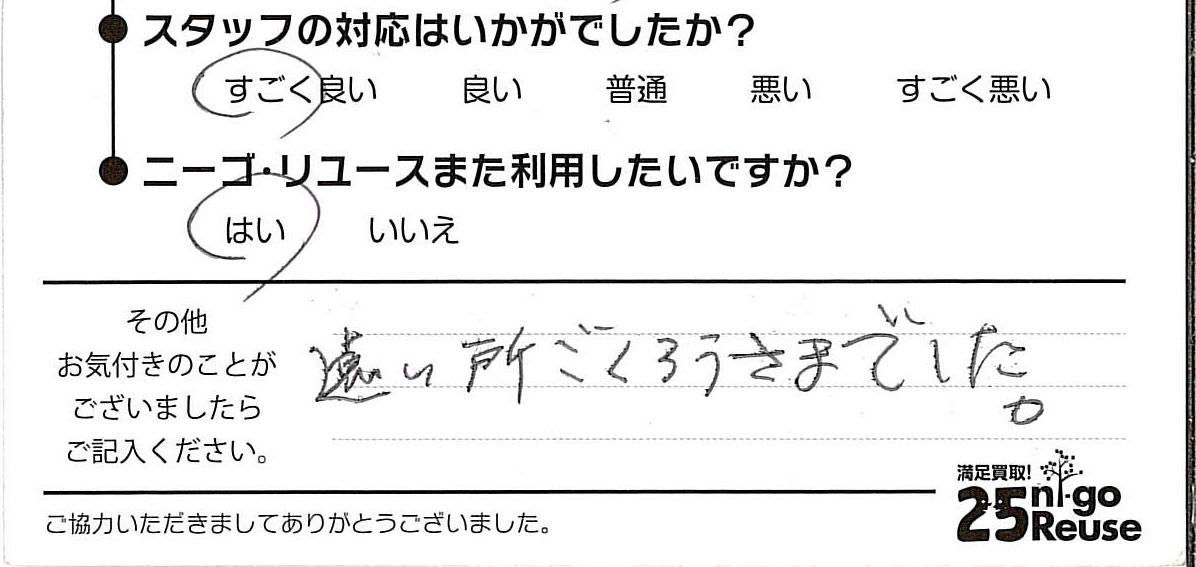 スタッフの対応はいかがでしたか?
すごく良い 良い 普通 悪い すごく悪い
ニーゴ・リユースまた利用したいですか?
はい いいえ
その他
お気付きのことが
ございましたら
ご記入ください。
遠い所ごくろうさまでした。
満足買取!
25 ni-go
Reuse
ご協力いただきましてありがとうございました。